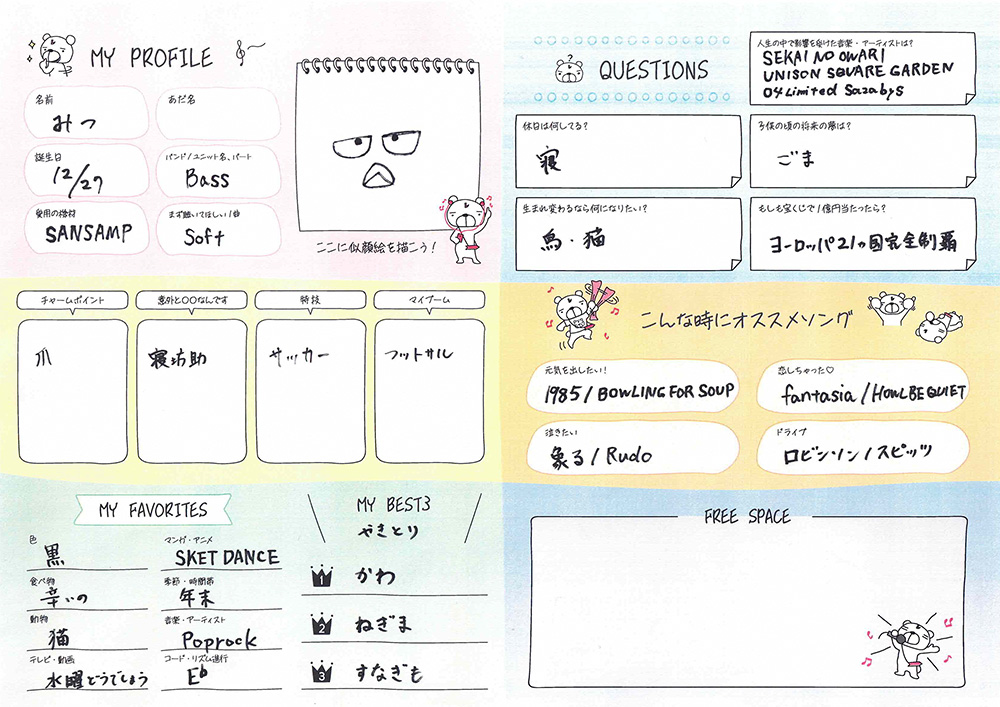 MY PROFILE
名前
みつ
あだ名
誕生日
12/27
バンド/ユニット名、パート
Bass
愛用の機材
SANSAMP
まず聴いてほしい1曲
Soft
ここに似顔絵を描こう!
QUESTIONS
人生の中で影響を受けた音楽・アーティストは?
SEKAI NO OWARI
UNISON SQUARE GARDEN
04 Limited Sazabys
休日は何してる?
寝
子供の頃の将来の夢は?
ごま
生まれ変わるなら何になりたい?
鳥・猫
もしも宝くじで1億円当たったら?
ヨーロッパ21ヵ国完全制覇
チャームポイント
爪
意外と〇〇なんです
寝坊助
特技
サッカー
マイブーム
フットサル
こんな時にオススメソング
元気を出したい!
1985 / BOWLING FOR SOUP
恋しちゃった♡
fantasia / HOWL BE QUIET
泣きたい
象る / Rudo
ドライブ
ロビンソン / スピッツ
MY FAVORITES
色
黒
マンガ・アニメ
SKET DANCE
食べ物
辛いの
季節・時間帯
年末
動物
猫
音楽・アーティスト
Poprock
テレビ・動画
水曜どうでしょう
コード・リズム進行
E♭
MY BEST3
やきとり
1 かわ
2 ねぎま
3 すなぎも
FREE SPACE